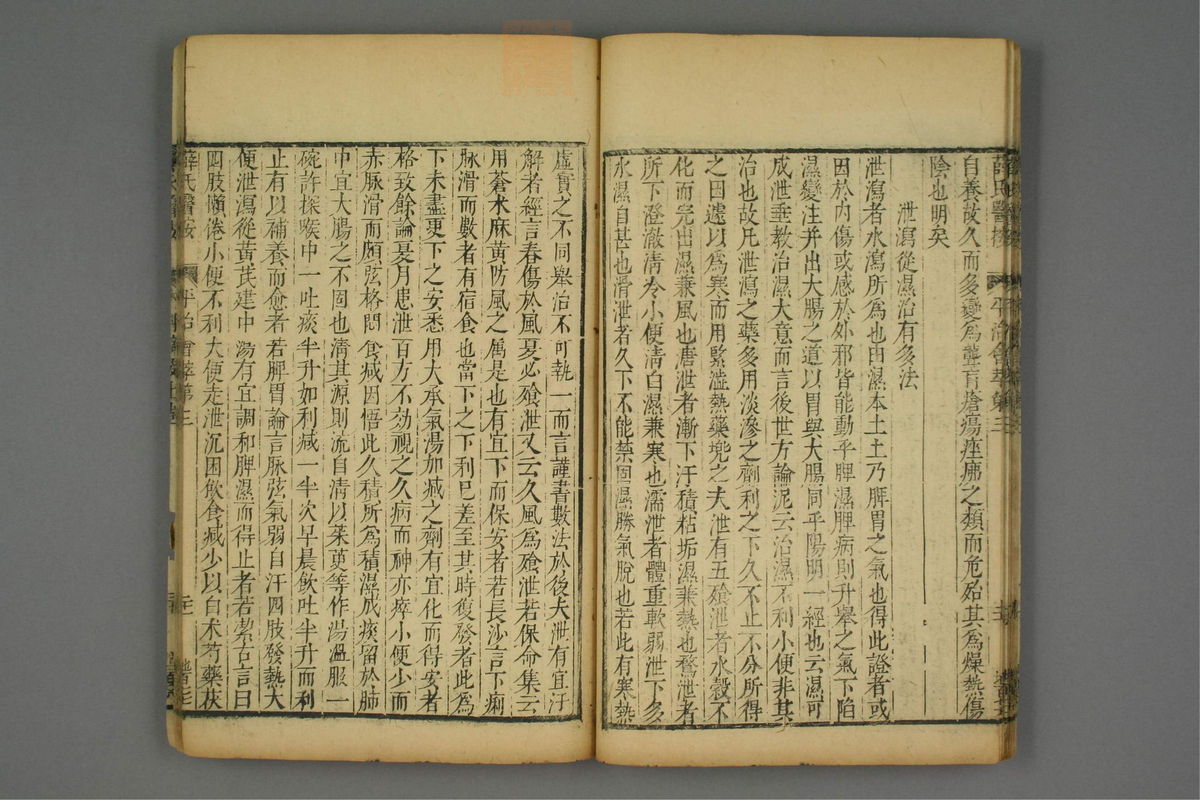 自養設久而多變爲聾盲瘡瘍痤疿之類而危殆其爲燥熱傷
陰也明矣
泄瀉從濕治有多法
泄瀉者水瀉所爲也由濕本土土乃脾胃之氣也得此證者或
因於內傷或感於外邪皆能動乎脾濕脾病則升舉之氣下陷
濕變注并出大腸之道以胃與大腸同乎陽明一經也云濕可
成泄垂教治濕大意而言後世方論泥云治濕不利小便非其
治也故凡泄瀉之藥多用淡滲之劑利之下久不止不分所得
之因遽以爲寒而用緊澁熱藥兠之夫泄有五飱泄者水穀不
化而完出濕兼風也溏泄者漸下汙積粘垢濕兼熱也鶩泄者
所下澄澈淸冷小便淸白濕兼寒也濡泄者體重軟弱泄下多
水濕自甚也滑泄者久下不能禁固濕勝氣脫也若此有寒熱
虛實之不同舉治不可執一而言謹書數法於後夫泄有宜汙
解者經言春傷於風夏必飱泄又云久風爲飱泄若保命集云
用蒼术麻黃防風之属是也有宜下而保安者若長沙言下痢
脉滑而數者有宿食也當下之下利巳差至其時復發者此爲
下未盡更下之安悉用大承氣湯加减之劑有宜化而得安者
格致餘論夏月患泄百方不効視之久病而神亦瘁小便少而
赤脉滑而頗弦格悶食减因悟此久積所爲積濕成痰留於肺
中宜大腸之不固也淸其源則流自淸以茱萸等作湯温服一
碗許探喉中一吐痰半升如利减一半次早晨飲吐半升而利
止有以補養而愈者若脾胃論言脉弦氣弱自汗四肢發熱大
便泄瀉從黃芪建中湯有宜調和脾濕而得止者若潔古言曰
四肢懶倦小便不利大便走泄沉困飮食减少以白术芍藥茯
薛氏醫按 平治會萃第三